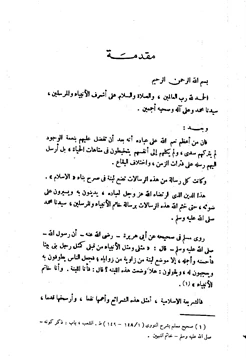 مقدمة
بسم الله الرحمن الرحيم
الحمد لله رب العالمين ، والصلاة والسلام على أشرف الأنبياء والمرسلين
سيدنا محمد وعلى آله وصحبه أجمعين .
وبعد :
فان من أعظم نعم الله على عباده أنه بعد أن تفضل عليهم بنعمة الوجود
لم يتركهم سدى ، ولم يكلهم إلى أنفسهم يتخبطون في متاهات الحياة ؛ بل أرسل
اليهم رسله على فترات الزمن ، واختلاف البقاع .
وكانت كل رسالة من هذه الرسالات تضع لبنة في صرح بناء « الاسلام » .
هذا الدين الذي ارتضاه الله عز وجل لعباده ، يدينون به ويسيرون على
ضوئه ، حتى ختم الله هذه الرسالات برسالة خاتم الأنبياء والمرسلين ، سيدنا محمد
صلى الله عليه وسلم .
روى مسلم في صحيحه عن أبي هريرة - رضي الله عنه - أن رسول الله -
صلى الله عليه وسلم - قال : « مثلي ومثل الأنبياء من قبلي كمثل رجل بنى بيتا
فأحسنه وأجمله ، إلا موضع لبنة من زاوية من زواياه ، فجعل الناس يطوفون به
ويعجبون له ، ويقولون : هلا وضعت هذه اللبنة ؟ قال : فأنا اللبنة . وأنا خاتم
الأنبياء » (١) .
فالشريعة الاسلامية ، أمثل هذه الشرائع وأعمها نفعا ، وأرسخها قدما ،
(١) صحيح مسلم بشرح النووي
صلى الله عليه وسلم - خاتم النبيين .